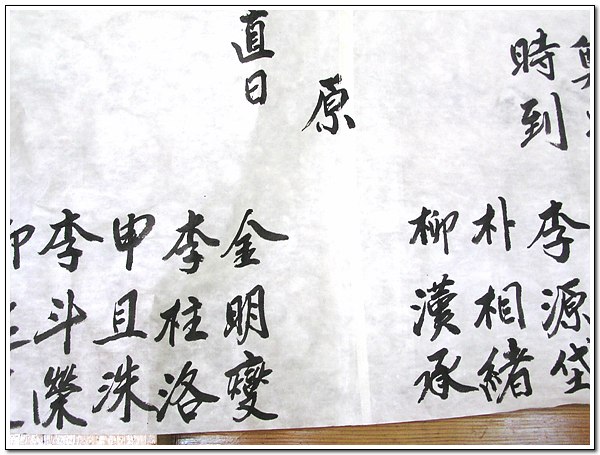 時到
李源垈
朴相緖
柳漢承
原
直日
金明燮
李柱洛
申且洙
李斗榮